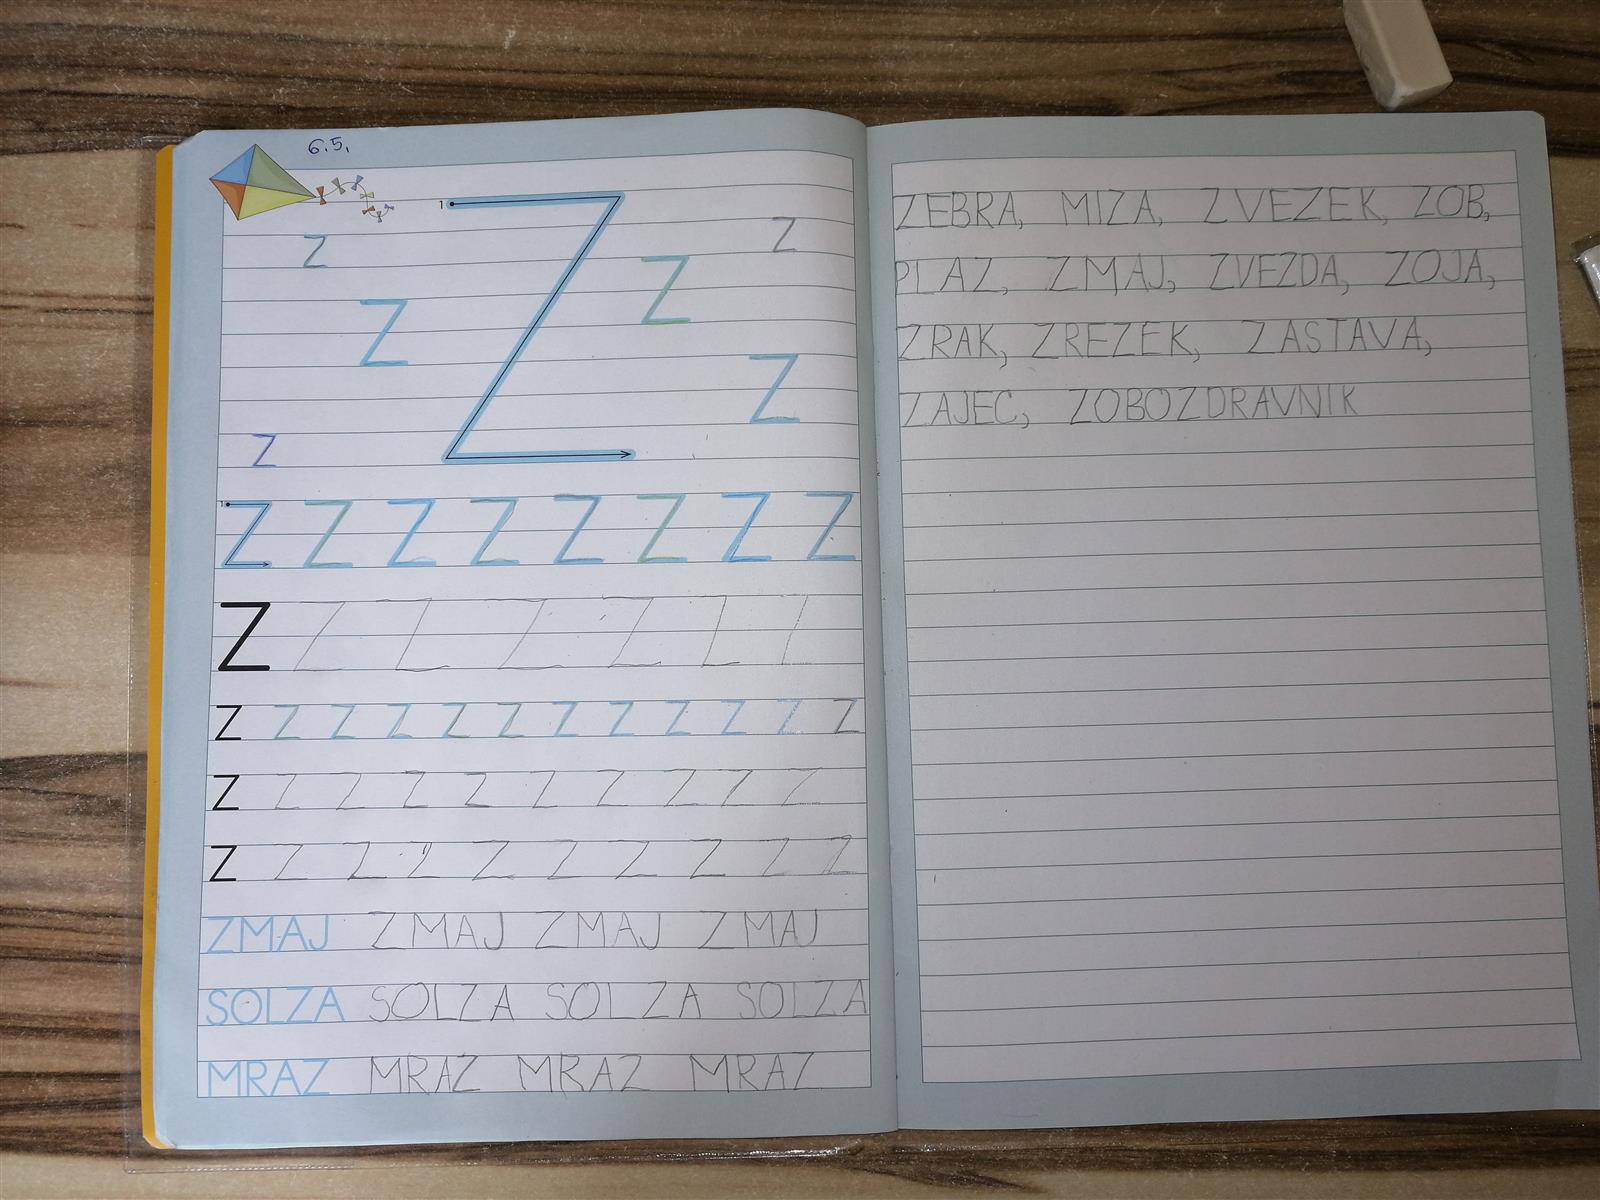 6.5.
1
Z Z
Z
Z
Z
Z
Z
1 Z Z Z Z Z Z Z Z
Z Z Z Z Z Z Z
Z Z Z Z Z Z Z Z Z Z Z Z
Z Z Z Z Z Z Z Z Z Z
Z Z Z Z Z Z Z Z Z Z
ZMAJ ZMAJ ZMAJ ZMAJ
SOLZA SOLZA SOLZA SOLZA
MRAZ MRAZ MRAZ MRAZ
ZEBRA, MIZA, ZVEZEK, ZOB,
PLAZ, ZMAJ, ZVEZDA, ZOJA,
ZRAK, ZREZEK, ZASTAVA,
ZAJEC, ZOBOZDRAVNIK